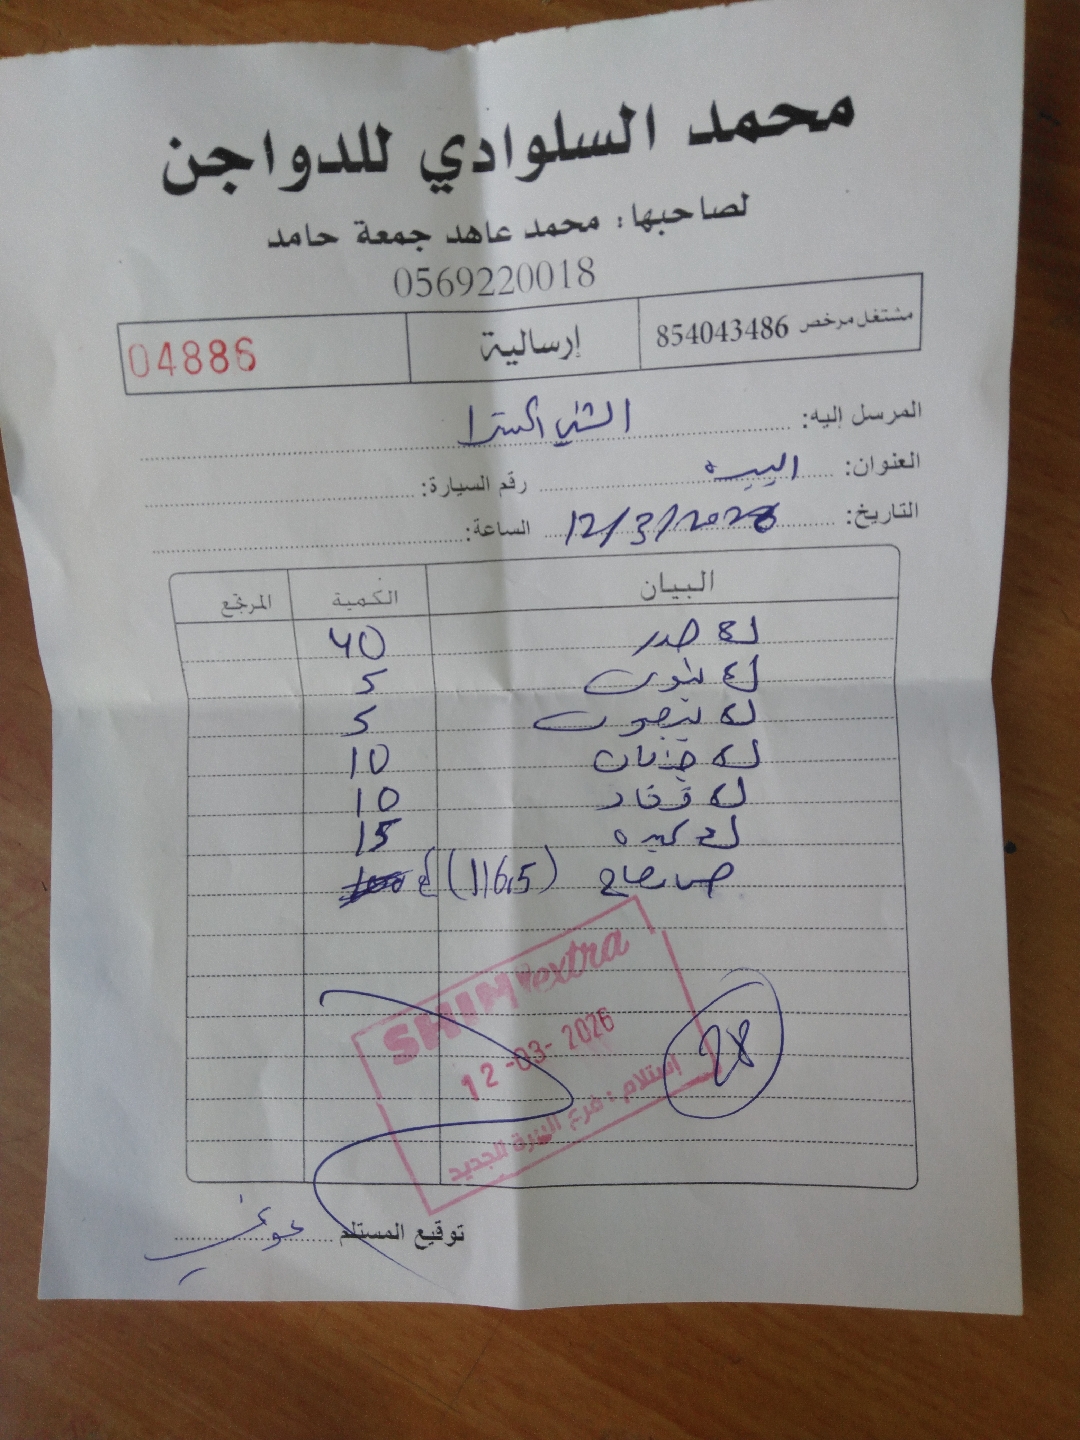 محمد السلوادي للدواجن
لصاحبها: محمد عاهد جمعة حامد
0569220018
مشتغل مرخص 854043486 إرسالية 04886
المرسل إليه: الشني اكسترا
العنوان: البيره رقم السيارة:
التاريخ: 12/3/2026 الساعة:
البيان الكمية المرتجع
صدر 40
5
5
10
10
كبده 15
(116,5)
SHINI extra
12-03-2026
إستلام: فرع البيرة الجديد
28
توقيع المستلم